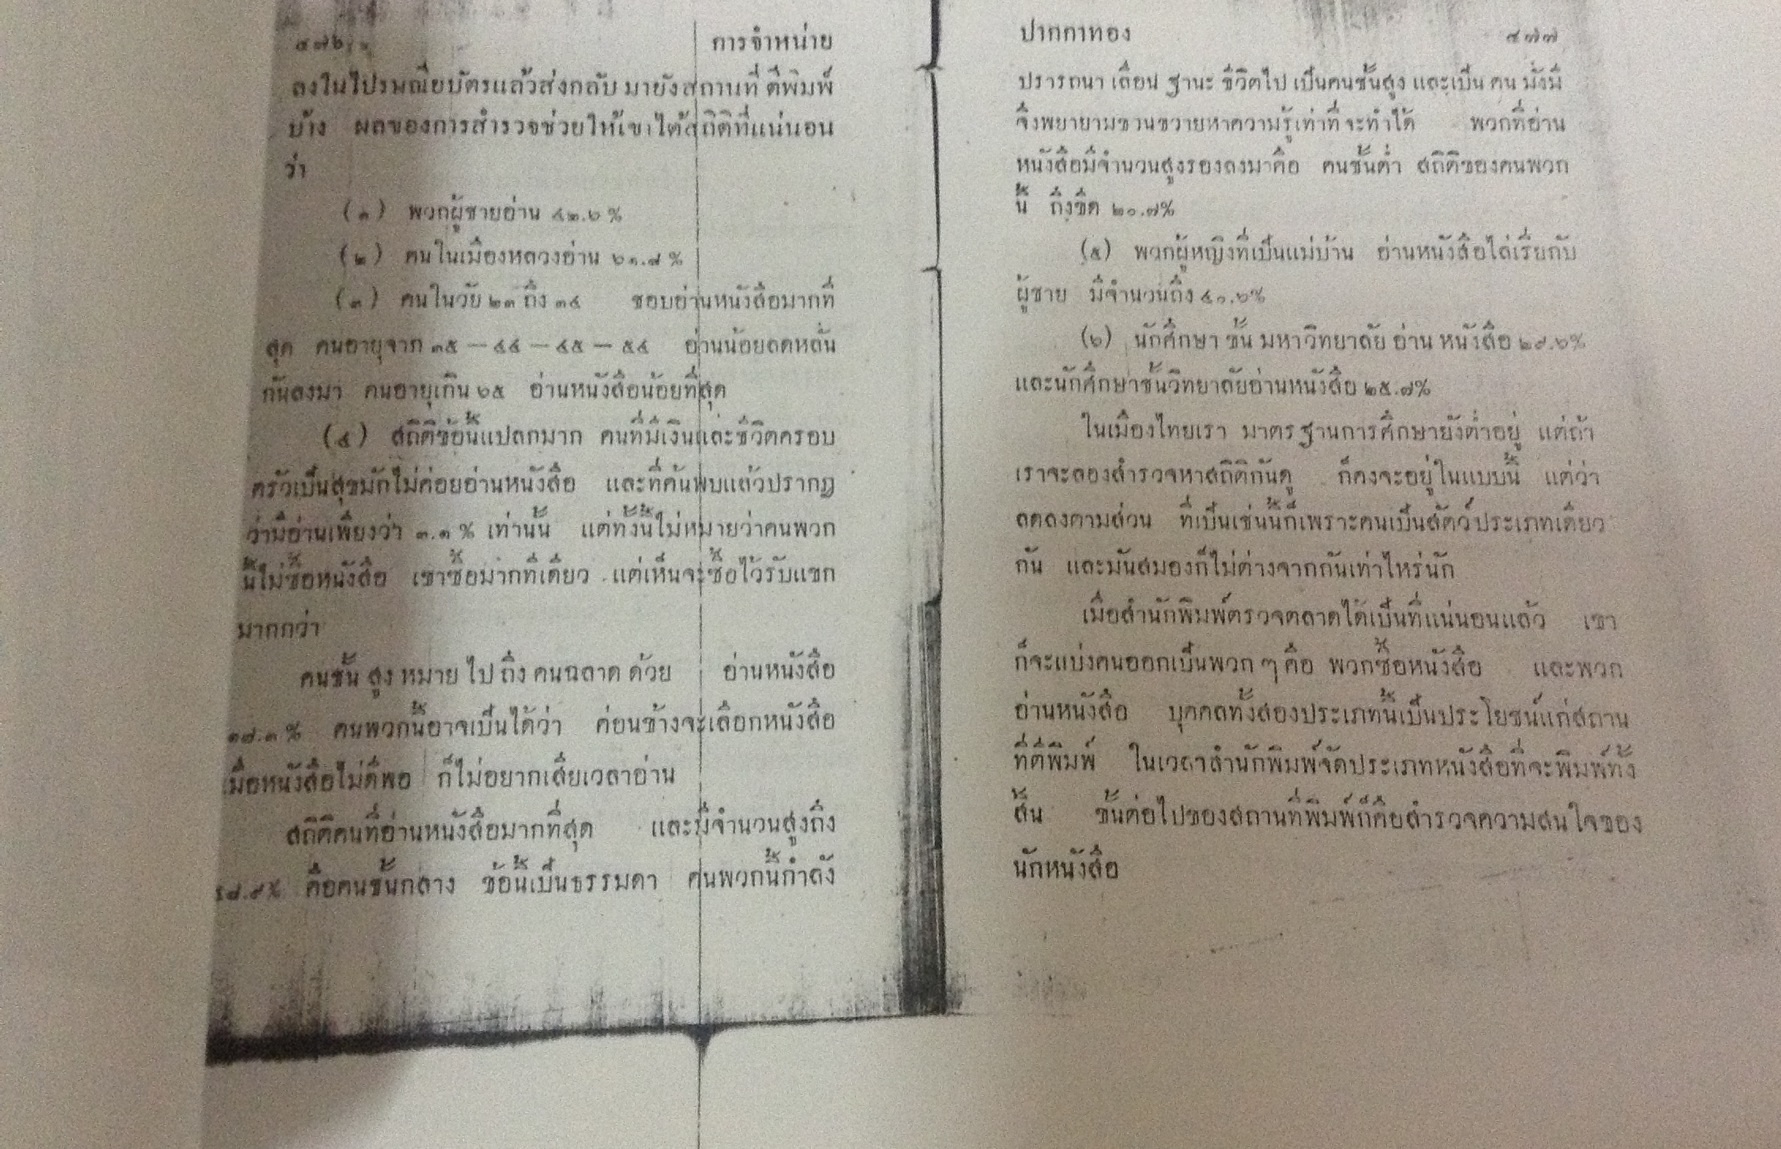 ๔๗๖ การจำหน่าย
ลงในไปรษณียบัตรแล้วส่งกลับ มายังสถานที่ ตีพิมพ์
บ้าง ผลของการสำรวจช่วยให้เขาได้สถิติที่แน่นอน
ว่า
(๑) พวกผู้ชายอ่าน ๔๒.๖ %
(๒) คนในเมืองหลวงอ่าน ๖๑.๘ %
(๓) คนในวัย ๒๓ ถึง ๓๔ ชอบอ่านหนังสือมากที่
สุด คนอายุจาก ๓๕ — ๔๔ — ๔๕ — ๕๔ อ่านน้อยลดหลั่น
กันลงมา คนอายุเกิน ๖๕ อ่านหนังสือน้อยที่สุด
(๔) สถิติข้อนี้แปลกมาก คนที่มีเงินและชีวิตครอบ
ครัวเป็นสุขมักไม่ค่อยอ่านหนังสือ และที่ค้นพบแล้วปรากฏ
ว่ามีอ่านเพียงว่า ๓.๑ % เท่านั้น แต่ทั้งนี้ไม่หมายว่าคนพวก
นี้ไม่ซื้อหนังสือ เขาซื้อมากทีเดียว แต่เห็นจะซื้อไว้รับแขก
มากกว่า
คนชั้น สูง หมาย ไป ถึง คนฉลาด ด้วย อ่านหนังสือ
๑๗.๓ % คนพวกนี้อาจเป็นได้ว่า ค่อนข้างจะเลือกหนังสือ
เมื่อหนังสือไม่ดีพอ ก็ไม่อยากเสียเวลาอ่าน
สถิติคนที่อ่านหนังสือมากที่สุด และมีจำนวนสูงถึง
คือคนชั้นกลาง ข้อนี้เป็นธรรมดา คนพวกนี้กำลัง
ปากกาทอง ๔๗๗
ปรารถนา เลื่อน ฐานะ ชีวิตไป เป็นคนชั้นสูง และเป็น คน มั่งมี
จึงพยายามขวนขวายหาความรู้เท่าที่จะทำได้ พวกที่อ่าน
หนังสือมีจำนวนสูงรองลงมาคือ คนชั้นต่ำ สถิติของคนพวก
นี้ ถึงขีด ๒๐.๗%
(๕) พวกผู้หญิงที่เป็นแม่บ้าน อ่านหนังสือไล่เรี่ยกับ
ผู้ชาย มีจำนวนถึง ๔๐.๖%
(๖) นักศึกษา ชั้น มหาวิทยาลัย อ่าน หนังสือ ๒๙.๖%
และนักศึกษาชั้นวิทยาลัยอ่านหนังสือ ๒๕.๗%
ในเมืองไทยเรา มาตรฐานการศึกษายังต่ำอยู่ แต่ถ้า
เราจะลองสำรวจหาสถิติกันดู ก็คงจะอยู่ในแบบนี้ แต่ว่า
ลดลงตามส่วน ที่เป็นเช่นนี้ก็เพราะคนเป็นสัตว์ประเภทเดียว
กัน และมันสมองก็ไม่ต่างจากกันเท่าไหร่นัก
เมื่อสำนักพิมพ์ตรวจตลาดได้เป็นที่แน่นอนแล้ว เขา
ก็จะแบ่งคนออกเป็นพวก ๆ คือ พวกซื้อหนังสือ และพวก
อ่านหนังสือ บุคคลทั้งสองประเภทนี้เป็นประโยชน์แก่สถาน
ที่ตีพิมพ์ ในเวลาสำนักพิมพ์จัดประเภทหนังสือที่จะพิมพ์ทั้ง
สิ้น ขั้นต่อไปของสถานที่พิมพ์ก็คือสำรวจความสนใจของ
นักหนังสือ